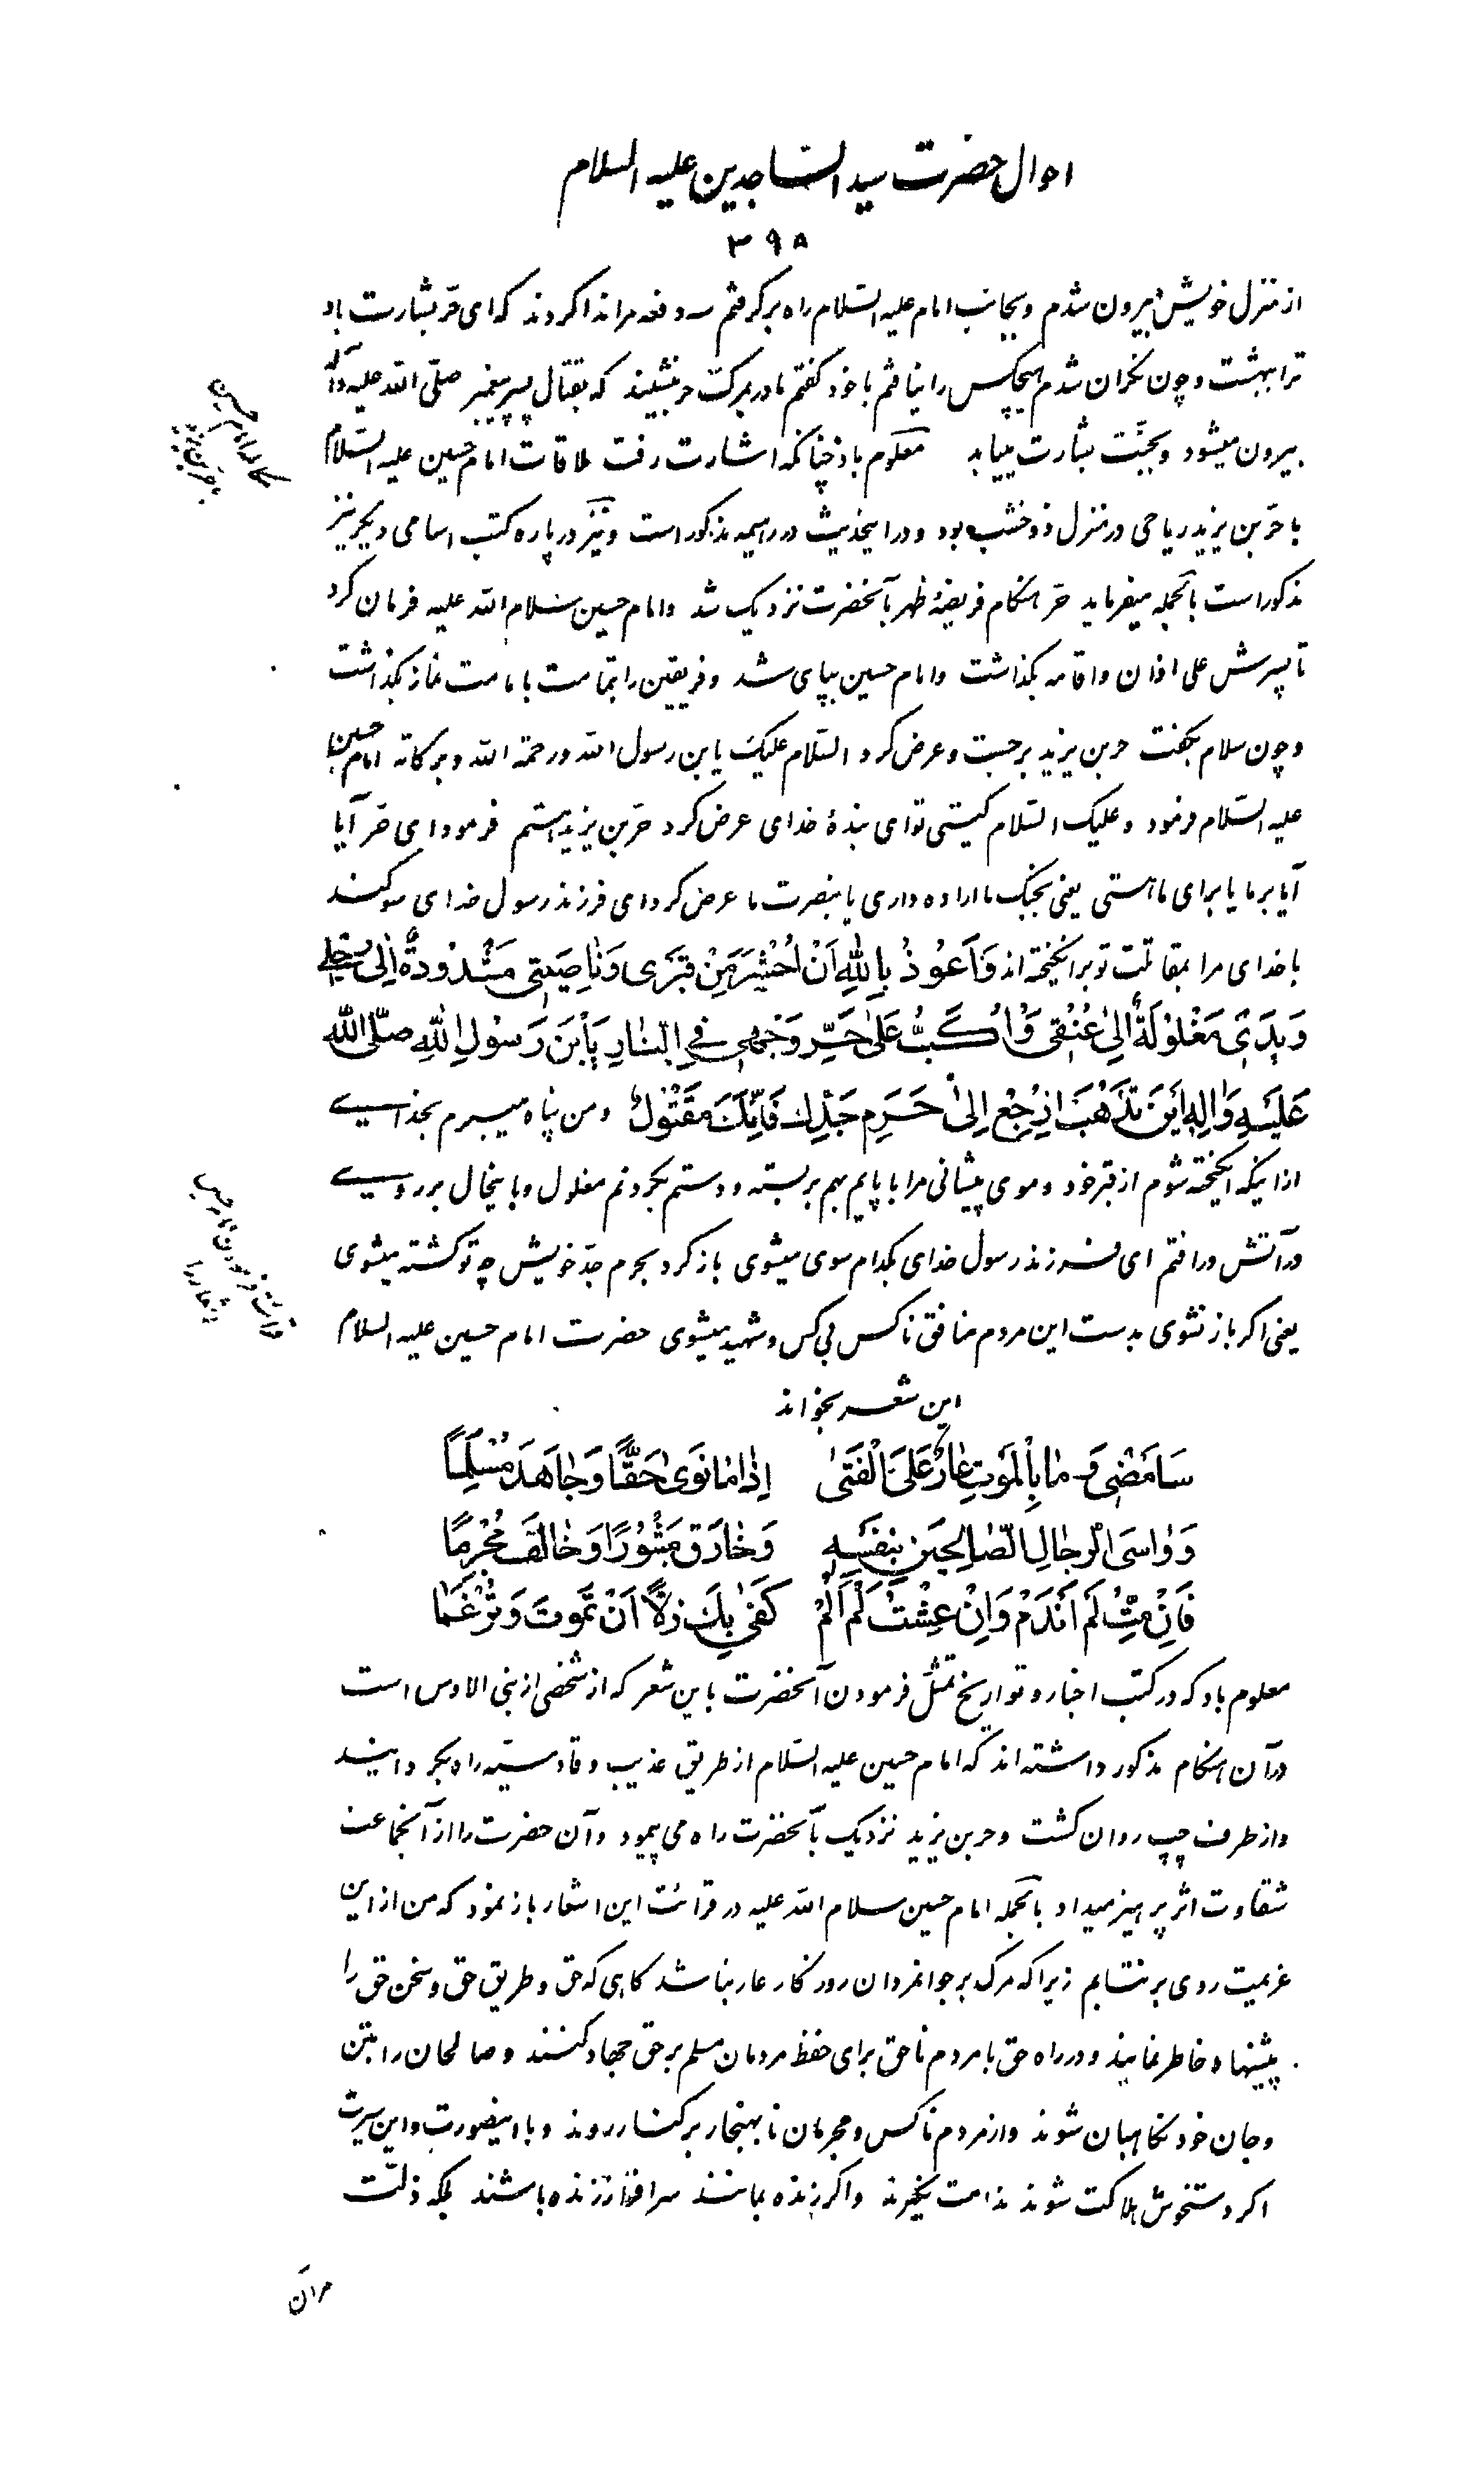 احوال حضرت سید الساجدین علیه السلام
۳۹۸
از منزل خویش بیرون شدم و بجانب امام علیه السّلام راه برگرفتم سه دفعه مرا ندا کردند که ای حرّ بشارت باد
ترا ببهشت و چون نکران شدم هیچکس را نیافتم با خود کفتم مادر بمرکت حر بنشیند که بقتال پسر پیغمبر صلّی اللّه علیه وآله
بیرون میشود و بجنّت بشارت مییابد معلوم باد چنانکه اشارت رفت ملاقات امام حسین علیه السّلام
با حرّ بن یزید ریاحی در منزل ذو خشب بود و در اینحدیث در رهیمه مذکور است و نیز در پاره کتب اسامی دیکر نیز
مذکور است بالجمله میفرماید حرّ هنکام فریضهٔ ظهر بآنحضرت نزدیک شد و امام حسین سلام اللّه علیه فرمان کرد
تا پسرش علی اذان و اقامه بکذاشت و امام حسین بپای شد و فریقین را بتمامت بامامت نماز بکذاشت
و چون سلام بکفت حر بن یزید برجست و عرض کرد السّلام علیک یابن رسول اللّه و رحمة اللّه و برکاته امام حسین
علیه السّلام فرمود و علیک السّلام کیستی تو ای بندهٔ خدای عرض کرد حرّ بن یزید هستم فرمود ای حرّ آیا
آیا بر ما یا برای ما هستی یعنی بجنک ما اراده داری یا بنصرت ما عرض کرد ای فرزند رسول خدای سوکند
با خدای مرا بمقاتلت تو برانکیخته اند وَاَعُوذُ بِاللهِ اَنْ اُحْشَرَ مِنْ قَبْرِی وَنَاصِیَتِی مَشْدُودَةٌ اِلیٰ رِجْلِی
وَیَدَیَّ مَغْلُولَةً اِلیٰ عُنُقِی وَاُکَبُّ عَلیٰ حَرِّ وَجْهِی فِی النّارِ یَابْنَ رَسُولِ اللهِ صَلَّی اللهُ
عَلَیْهِ وَاٰلِهِ اَیْنَ تَذْهَبُ اِرْجِعْ اِلیٰ حَرَمِ جَدِّكَ فَاِنَّكَ مَقْتُولٌ و من پناه میبرم بخدای
از اینکه انکیخته شوم از قبر خود و موی پیشانی مرا با پایم بهم بربسته و دستم بکردنم مغلول و باینحال بر روی
در آتش درافتم ای فرزند رسول خدای بکدام سوی میشوی باز کرد بحرم جدّ خویش چه تو کشته میشوی
یعنی اکر باز نشوی بدست این مردم منافق ناکس بی کس و شهید میشوی حضرت امام حسین علیه السلام
این شعر بخواند
سَاَمْضِی وَمٰا بِالْمَوْتِ عٰارٌ عَلَی الْفَتیٰ اِذٰا مٰا نَوَی حَقّاً وَجٰاهَدَ مُسْلِماً
وَوٰاسَی الرِّجٰالَ الصّٰالِحینَ بِنَفْسِهِ وَفٰارَقَ مَثْبُوراً وَخٰالَفَ مُجْرِماً
فَاِنْ مِتُّ لَمْ اَنْدَمْ وَاِنْ عِشْتُ لَمْ اُلَمْ کَفیٰ بِكَ ذُلّاً اَنْ تَمُوتَ وَتُرْغَمٰا
معلوم باد که در کتب اخبار و تواریخ تمثّل فرمودن آنحضرت باین شعر که از شخصی از بنی الاوس است
در آن هنکام مذکور داشته اند که امام حسین علیه السّلام از طریق عذیب و قادسیّه راه بکردانید
و از طرف چپ روان کشت و حر بن یزید نزدیک بآنحضرت راه می پیمود و آن حضرت را از آنجماعت
شقاوت اثر پرهیز میداد بالجمله امام حسین سلام اللّه علیه در قرائت این اشعار باز نمود که من از این
عزیمت روی برنتابم زیرا که مرک بر جوانمردان روزکار عار نباشد کاهی که حق و طریق حق و سخن حق را
پیشنهاد خاطر نمایند و در راه حق با مردم ناحق برای حفظ مردمان مسلم بر حق جهاد کنند و صالحان را بتن
و جان خود نکاهبان شوند و از مردم ناکس و مجرمان نابهنجار بر کنار روند و با اینصورت و این سیرت
اکر دستخوش هلاکت شوند ندامت نکیرند و اکر زنده بمانند سرافراز زنده باشند بلکه ذلّت
مکالمه امام حسین
با حر بن یزید
قرائت فرمودن امام حسین
اشعار را
مرآن